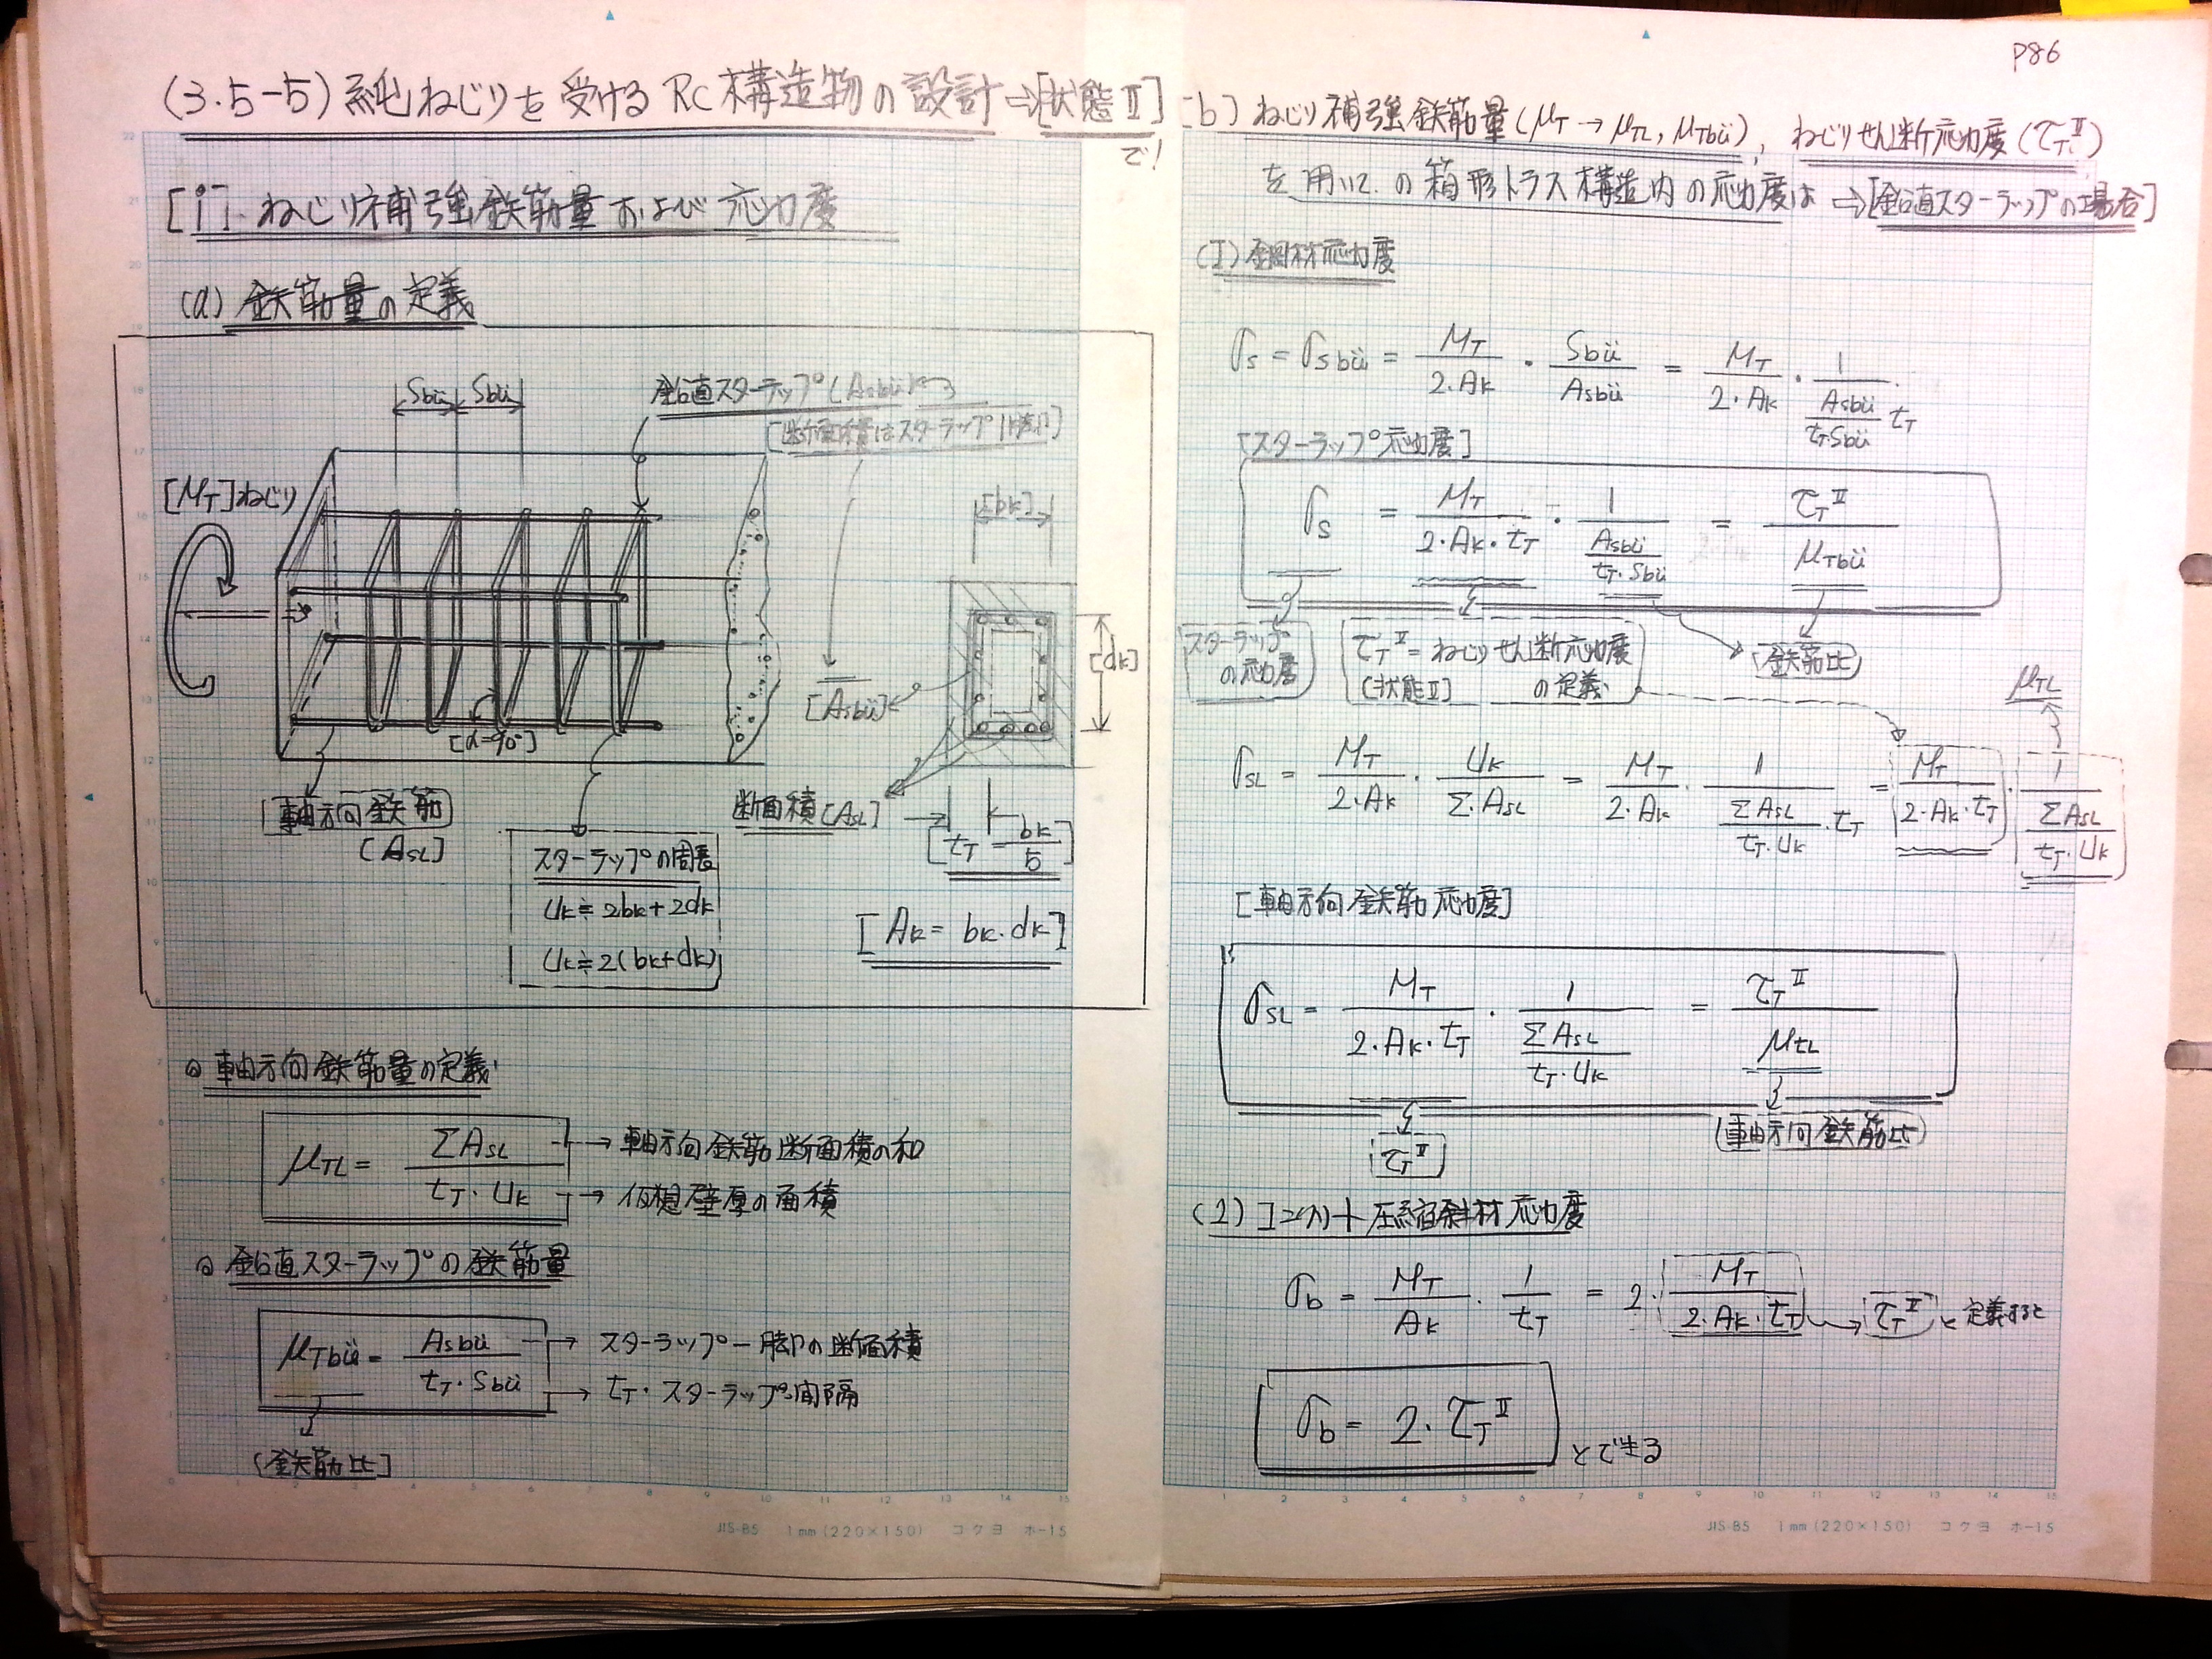 P86
(3.5-5) 純ねじりを受けるRC構造物の設計⇒[状態Ⅱ]
で!
[i] ねじり補強鉄筋量および応力度
(a) 鉄筋量の定義
Sbü Sbü
鉛直スターラップ(Asbü)
[断面積はスターラップ1脚]
[MT]ねじり
[bk]
[dk]
[Asbü]
[α=90°]
軸方向鉄筋
[AsL]
断面積[AsL]
[tT = bk/5]
スターラップの周長
Uk≒2bk+2dk
Uk≒2(bk+dk)
[Ak = bk・dk]
軸方向鉄筋量の定義
μTL = ΣAsL / tT・Uk
→ 軸方向鉄筋断面積の和
→ 仮想壁厚の面積
鉛直スターラップの鉄筋量
μTbü = Asbü / tT・Sbü
→ スターラップ一脚の断面積
→ tT・スターラップ間隔
[鉄筋比]
JIS-B5 1mm(220×150) コクヨ ホ-15
(b) ねじり補強鉄筋量(μT→μTL, μTbü), ねじりせん断応力度(τT Ⅱ)
を用いての箱形トラス構造内の応力度は⇒[鉛直スターラップの場合]
(1) 鋼材応力度
σs = σsbü = MT / 2・Ak ・ Sbü / Asbü = MT / 2・Ak ・ 1 / (Asbü / tT Sbü) tT
[スターラップ応力度]
σs = MT / 2・Ak・tT ・ 1 / (Asbü / tT・Sbü) = τT Ⅱ / μTbü
スターラップの応力度
τT Ⅱ = ねじりせん断応力度
[状態Ⅱ] の定義
[鉄筋比]
μTL
σsL = MT / 2・Ak ・ Uk / Σ・AsL = MT / 2・Ak ・ 1 / (ΣAsL / tT・Uk)・tT = MT / 2・Ak・tT ・ 1 / (ΣAsL / tT・Uk)
[軸方向鉄筋応力度]
σsL = MT / 2・Ak・tT ・ 1 / (ΣAsL / tT・Uk) = τT Ⅱ / μtL
[τT Ⅱ]
[軸方向鉄筋比]
(2) コンクリート圧縮斜材応力度
σb = MT / Ak ・ 1 / tT = 2・MT / 2・Ak・tT → [τT Ⅱ] と定義すると
σb = 2・τT Ⅱ とできる
JIS-B5 1mm(220×150) コクヨ ホ-15